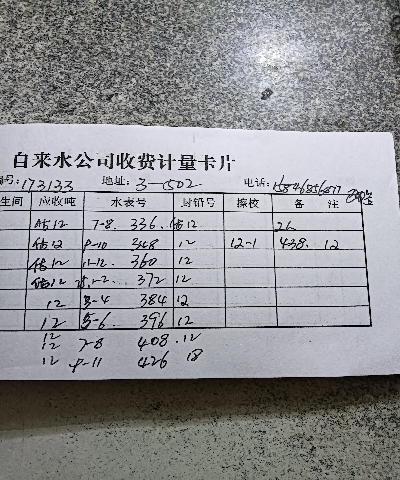 自来水公司收费计量卡片
编号:173133 地址:3-1502 电话:15846856877
生间 应收吨 水表号 封铅号 擦校 备注
估12 7-8. 336. 估12 26
估12 9-10 348 12 12-1 438. 12
估12 11-12. 360 12
估12 1-2. 372 12
12 3-4 384 12
12 5-6. 396 12
12 7-8 408. 12
12 9-11 426 18